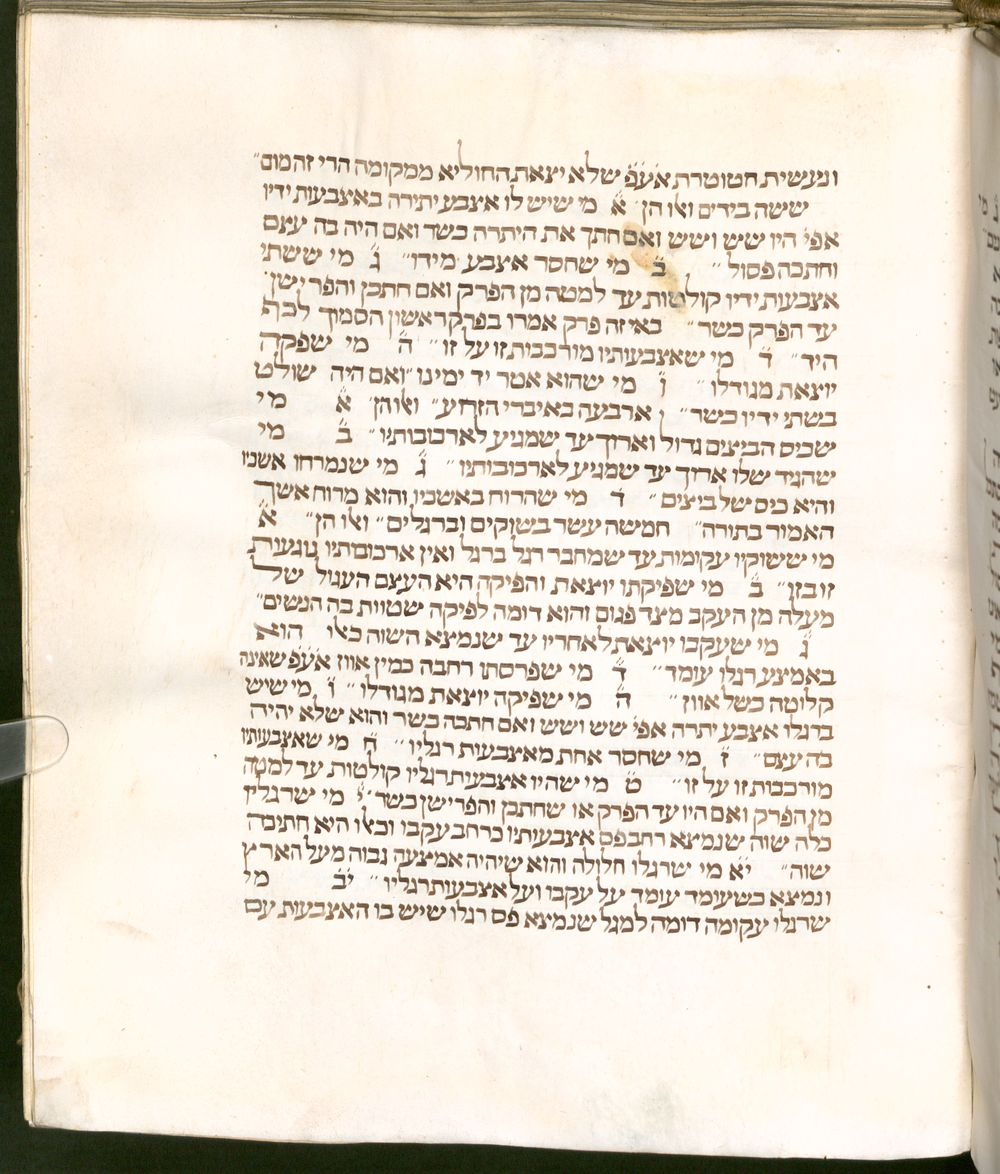 ונעשית חטוטרת אע׳׳פ שלא יצאת החוליא ממקומה הרי זה מום״
ששה בידים ואלו הן׳ א̈ מי שיש לו אצבע יתירה באצבעות ידיו
אפי׳ היו שש ושש ואם חתך את היתרה כשר ואם היה בה עצם
וחתכה פסול״ ב̈ מי שחסר אצבע מידו״ ג̈ מי ששתי
אצבעות ידיו קלוטות עד למטה מן הפרק ואם חתכן והפרישן׳
עד הפרק כשר״ באי זה פרק אמרו בפרק ראשון הסמוך לכף
היד״ ד̈ מי שאצבעותיו מורכבות זו על זו״ ה̈ מי שפקה
יוצאת מגודלו״ ו̈ מי שהוא אטר יד ימינו״ ואם היה שולט
בשתי ידיו כשר״ ארבעה באיברי הזרע״ ואלו הן׳ א̈ מי
שכיס הביצים גדול וארוך עד שמגיע לארכובותיו״ ב̈ מי
שהגיד שלו ארוך עד שמגיע לארכובותיו״ ג̈ מי שנמרחו אשכיו
והיא כיס של ביצים״ ד̈ מי שהרוח באשכיו והוא מרוח אשך
האמור בתורה״ חמשה עשר בשוקים וברגלים״ ואלו הן״ א̈
מי ששוקיו עקומות עד שמחבר רגל ברגל ואין ארכובותיו נוגעות
זו בזו״ ב̈ מי שפיקתו יוצאת והפיקה היא העצם העגול של
מעלה מן העקב מצד פנום זהוא דומה לפיקה שטוות בה הנשים״
ג̈ מי שעקבו יוצאת לאחריו עד שנמצא השוה כאלו הוא
באמצע רגלו עומד״ ד̈ מי שפרסתו רחבה כמין אווז אע׳׳פ שאינה
קלוטה כשל אווז״ ה̈ מי שפיקה יוצאת מגודלו״ ו̈ מי שיש
ברגלו אצבע יתרה אפי׳ שש ושש ואם חתכה כשר והוא שלא יהיה
בה עצם״ ז̈ מי שחסר אחת מאצבעות רגליו״ ח̈ מי שאצבעותיו
מורכבות זו על זו״ ט̈ מי שהיו אצבעות רגליו קלוטות עד למטה
מן הפרק ואם היו עד הפרק או שחתכן והפרישן כשר״ י̈ מי שרגליו
כלה שוה שנמצא רחב פס אצבעותיו כרחב עקבו וכאלו היא חתיכה
שוה״ י̈א̈ מי שרגלו חלולה והוא שיהיה אמצעה גבוה מעל הארץ
ונמצא כשעומד עומד על עקבו ועל אצבעות רגליו״ י̈ב̈ מי
שרגלו עקומה דומה למגל שנמצא פס רגלו שיש בו האצבעות עם